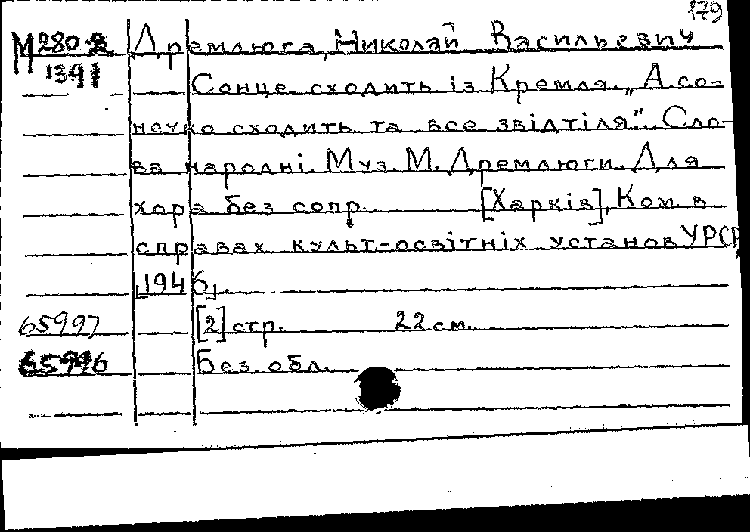 179
М 280-2 Дремлюга, Николай Васильевич
1391 Сонце сходить із Кремля. „А со-
нечко сходить та все звідтіля". Сло-
ва народні. Муз. М. Дремлюги. Для
хора без сопр. [Харків], Ком. в
справах культ-освітніх установ УРСР,
[1946].
65997 [2] стр. 22 см.
65996 Без обл.